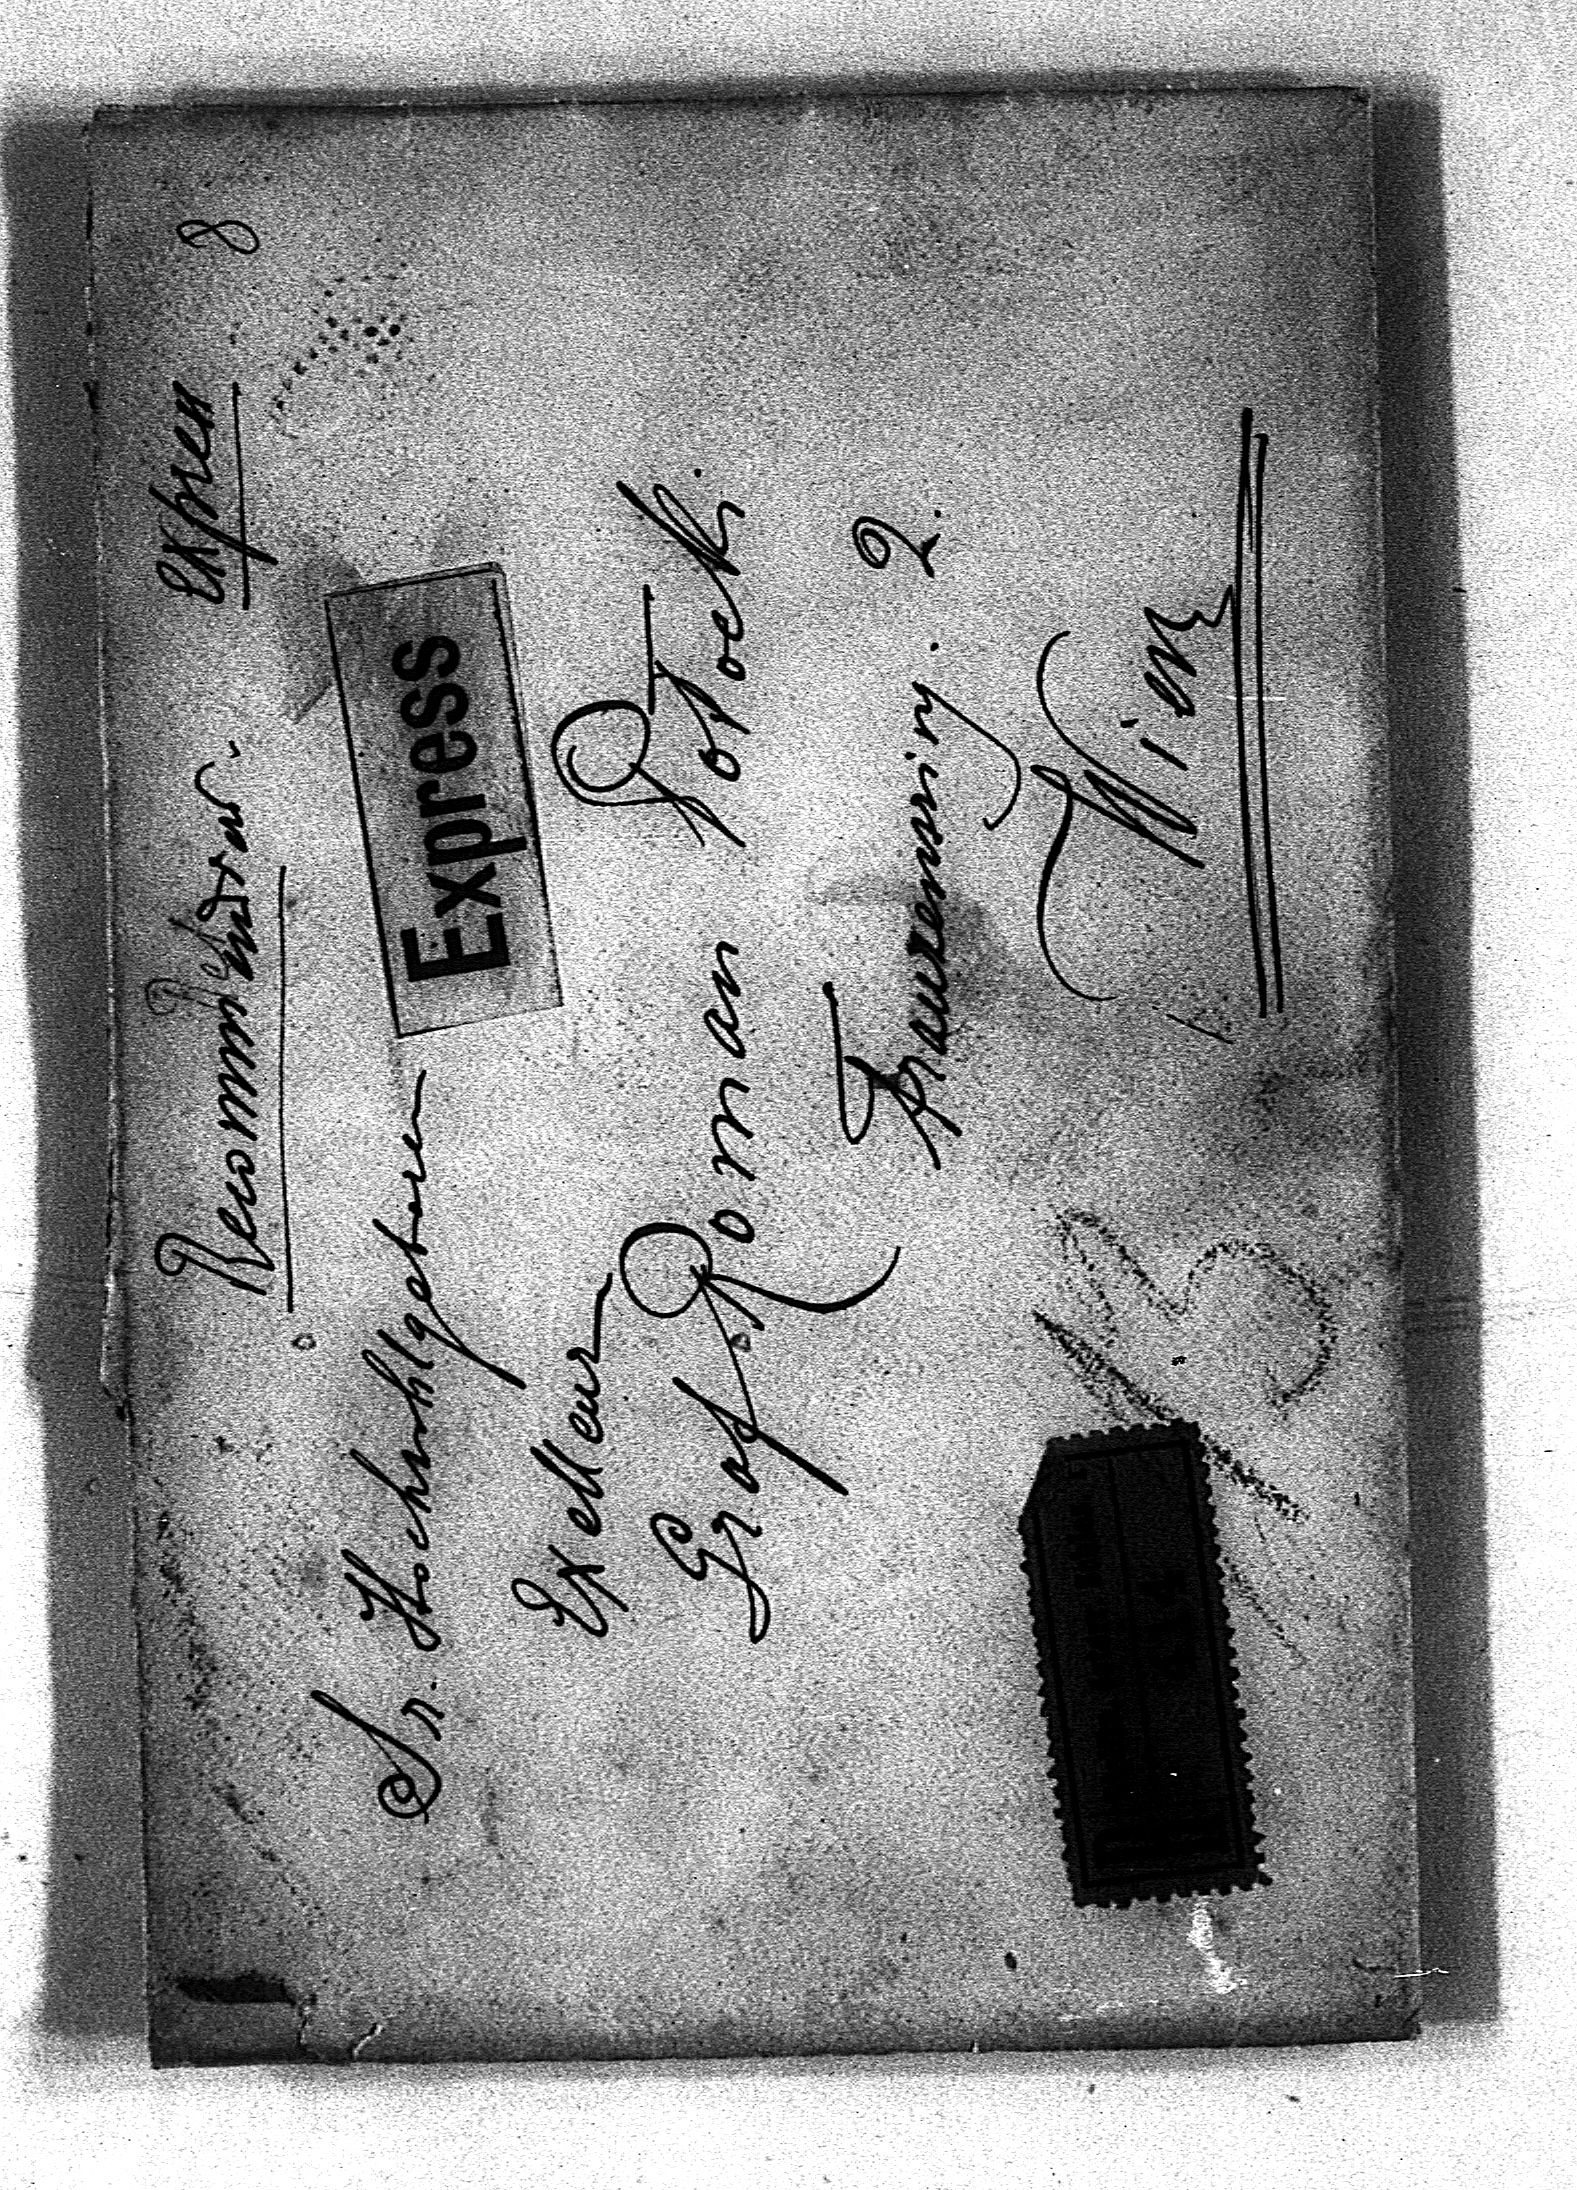 Recommandirt. Expres 8
Express
Sr. Hochwohlgeboren
Exellenz
Graf Roman Potocki.
Franzensring. 2.
Wien